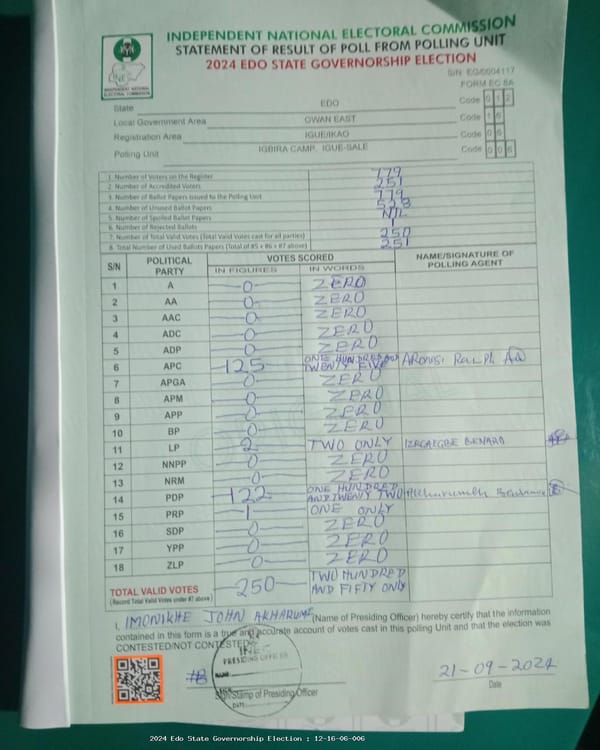 INDEPENDENT NATIONAL ELECTORAL COMMISSION
STATEMENT OF RESULT OF POLL FROM POLLING UNIT
2024 EDO STATE GOVERNORSHIP ELECTION
S/N: EG/0004117
FORM EC 8A
INEC
INDEPENDENT NATIONAL ELECTORAL COMMISSION
State EDO Code 0 1 2
Local Government Area OWAN EAST Code 1 6
Registration Area IGUE/IKAO Code 0 6
Polling Unit IGBIRA CAMP, IGUE-SALE Code 0 0 6
1. Number of Voters on the Register 779
2. Number of Accredited Voters 251
3. Number of Ballot Papers Issued to the Polling Unit 779
4. Number of Unused Ballot Papers 528
5. Number of Spoiled Ballot Papers NIL
6. Number of Rejected Ballots 1
7. Number of Total Valid Votes (Total Valid Votes cast for all parties) 250
8. Total Number of Used Ballots Papers (Total of #5 + #6 + #7 above) 251
S/N POLITICAL PARTY VOTES SCORED NAME/SIGNATURE OF POLLING AGENT
IN FIGURES IN WORDS
1 A 0 ZERO
2 AA 0 ZERO
3 AAC 0 ZERO
4 ADC 0 ZERO
5 ADP 0 ZERO
6 APC 125 ONE HUNDRED AND TWENTY FIVE
7 APGA 0 ZERO
8 APM 0 ZERO
9 APP 0 ZERO
10 BP 0 ZERO
11 LP 2 TWO ONLY
12 NNPP 0 ZERO
13 NRM 0 ZERO
14 PDP 122 ONE HUNDRED AND TWENTY TWO
15 PRP 1 ONE ONLY
16 SDP 0 ZERO
17 YPP 0 ZERO
18 ZLP 0 ZERO
TOTAL VALID VOTES 250 TWO HUNDRED AND FIFTY ONLY
(Record Total Valid Votes under #7 above)
I, IMONIKHE JOHN AKHARUME (Name of Presiding Officer) hereby certify that the information
contained in this form is a true and accurate account of votes cast in this polling Unit and that the election was
CONTESTED/NOT CONTESTED
INEC
PRESIDING OFFICER
NAME
DATE
Sign/Stamp of Presiding Officer
21-09-2024
Date
2024 Edo State Governorship Election : 12-16-06-006